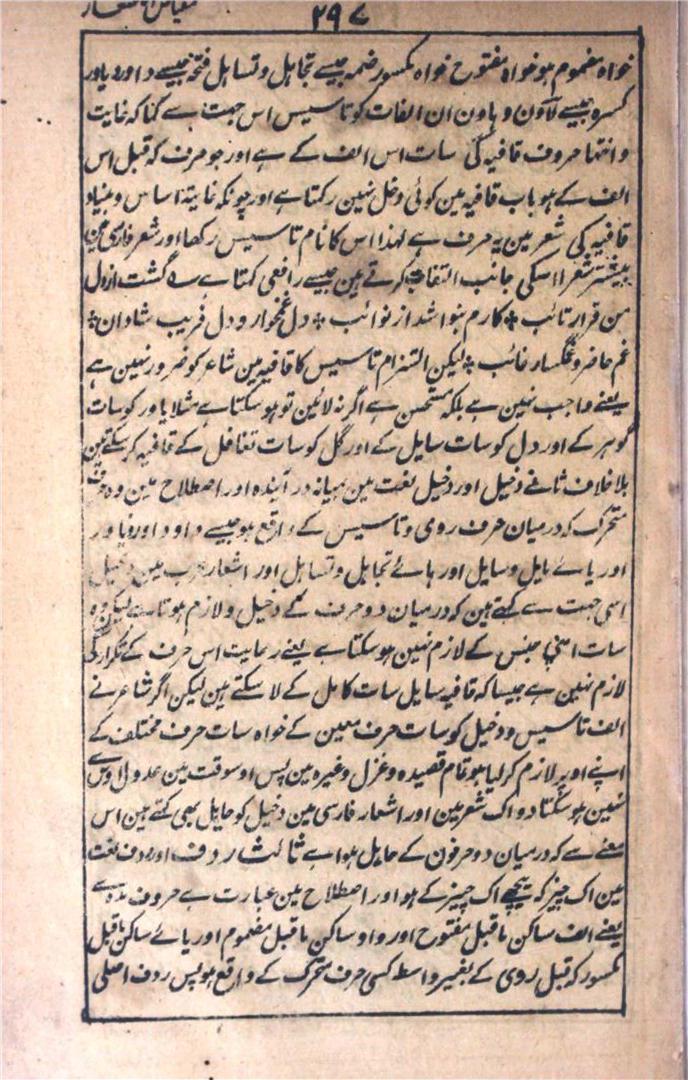 ۲۹۷
خواہ مضموم ہو خواہ مفتوح خواہ مکسور ضمہ جیسے تجاہل و تساہل فتحہ جیسے داور و یاور
کسرہ جیسے لاون و ہاون ان الفات کو تاسیس اس جہت سے کہا کہ غایت
و انتہا حروف قافیہ کی سات اس الف کے ہے اور جو حرف کہ قبل اس
الف کے ہو باب قافیہ مین کوئی دخل نہین رکھتا ہے اور چونکہ غایتہ اساس و بنیاد
قافیہ کی شعر مین یہ حرف ہے لہذا اس کا نام تاسیس رکھا اور شعر فارسی مین
بیشتر شعرا اسکی جانب التفات کرتے ہین جیسے رافعی کہتا ہے ؎ گشت از دل
من قرار تائب ٭ کارم بنوا شد از نوائب ٭ دل غمخوار و دل فریب شادان ٭
غم حاضر و غمگسار غائب ٭ لیکن التزام تاسیس کا قافیہ مین شاعر کو ضرور نہین ہے
یعنے واجب نہین ہے بلکہ مستحسن ہے اگر نہ لائین تو ہو سکتا ہے مثلا یاور کو سات
گوہر کے اور دل کو سات سایل کے اور گل کو سات تغافل کے قافیہ کر سکتے ہین
بلا خلاف ثانے دخیل اور دخیل لغت مین بمیانہ در آیندہ اور اصطلاح مین وہ حرف
متحرک کہ درمیان حرف روی و تاسیس کے واقع ہو جیسے واو داور و یاور
اور یاے مایل و سایل اور ہاے تجاہل و تساہل اور اشعار عرب مین دخیل
اسی جہت سے کہتے ہین کہ درمیان دو حرف کے دخیل و لازم ہوتا ہے لیکن وہ
سات اپنی جنس کے لازم نہین ہو سکتا ہے یعنے رعایت اس حرف کے تکرار کی
لازم نہین ہے جیسا کہ قافیہ سایل سات کامل کے لا سکتے ہین لیکن اگر شاعر نے
الف تاسیس و دخیل کو سات حرف معین کے خواہ سات حرف مختلف کے
اپنے اوپر لازم کر لیا ہو تمام قصیدہ و غزل وغیرہ مین پس اوسوقت مین عدول اوس سے
نہین ہو سکتا دو اک شعر مین اور اشعار فارسی مین دخیل کو حایل بھی کہتے ہین اس
معنے سے کہ درمیان دو حرفون کے حایل ہوا ہے ثالث ردف اور ردف لغت
مین اک چیز کہ پیچھے اک چیز کے ہو اور اصطلاح مین عبارت ہے حروف مدہ سے
یعنے الف ساکن ماقبل مفتوح اور واو ساکن ماقبل مضموم اور یاے ساکن ماقبل
مکسور کہ قبل روی کے بغیر واسطہ کسی حرف متحرک کے واقع ہو پس ردف اصلی